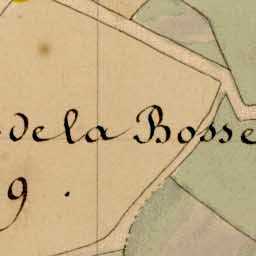 de la Bosse
9.